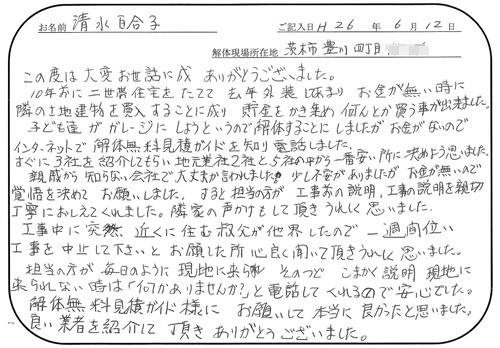 お名前 清水百合子 ご記入日 H 26 年 6 月 12 日
解体現場所在地 茨木市 豊川 四丁目
この度は大変お世話に成 ありがとうございました。
10年前に二世帯住宅をたてて 去年外装し(であまり) お金が無い時に
隣の土地建物を買入することに成り 貯金をかき集め何んとか買う事が出来ました。
子ども達が ガレージに しようというので解体することにしましたがお金がないので
インターネットで 解体無料見積ガイドを知り電話しました。
すぐに3社を紹介してもらい地元業社2社と5社の中から一番安い所に決めよう思いました。
親戚から知らない会社で大丈夫か言われました 少し不安がありましたがお金が無いので
覚悟を決めて お願いしました。すると担当の方が 工事前の説明、工事の説明を親切
丁寧におしえてくれました。隣家の声かけもして頂きうれしく思いました。
工事中に突然 近くに住む叔父が他界したので 一週間位い
工事を中止して下さいと お願した所心良く聞いて頂きうれしく思いました。
担当の方が毎日のように 現地に来られ そのつど こまかく説明 現地に
来られない時は「何かありませんか?」と電話してくれるので安心でした。
解体無料見積ガイド様に お願いして本当に良かったと思いました。
良い業者を紹介して頂き ありがとうございました。